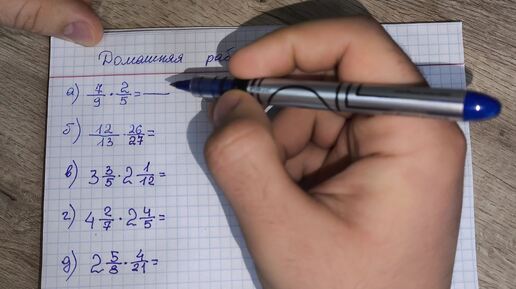 Домашняя раб
а) 7/9 · 2/5 =
б) 12/13 · 26/27 =
в) 3 3/5 · 2 1/12 =
г) 4 2/7 · 2 4/5 =
д) 2 5/8 · 4/21 =